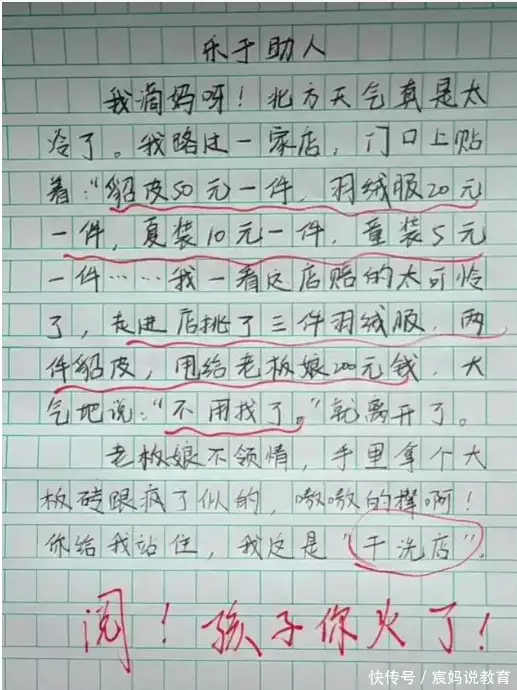 乐于助人
我滴妈呀！北方天气真是太
冷了。我路过一家店，门口上贴
着："貂皮50元一件，羽绒服20元
一件，夏装10元一件，童装5元
一件……我一看这店赔的太可怜
了，走进店挑了三件羽绒服，两
件貂皮，甩给老板娘200元钱，大
气地说："不用找了。"就离开了。
老板娘不领情，手里拿个大
板砖跟疯了似的，嗷嗷的撵啊！
你给我站住，我这是"干洗店"。
阅！孩子你火了！
快传号／宸妈说教育